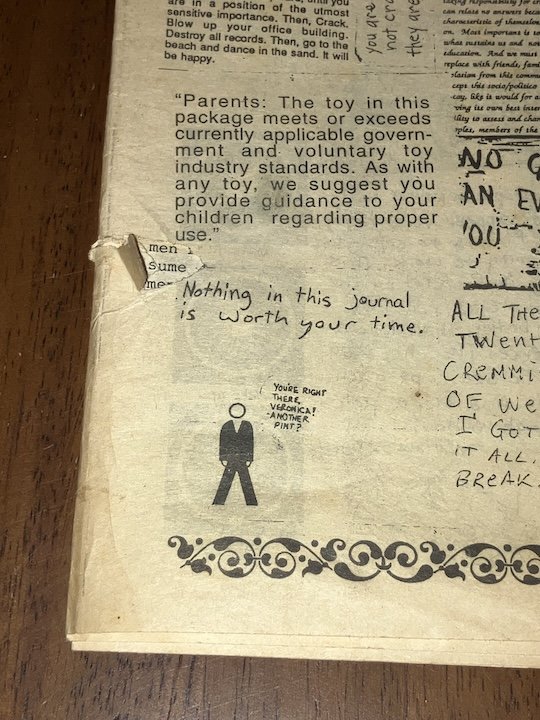 are in a position of the utmost
sensitive importance. Then, Crack.
Blow up your office building.
Destroy all records. Then, go to the
beach and dance in the sand. It will
be happy.
you are
not cra
they are
characteristic of themselves
on. Most important is to
what sustains us and
education. And we must
replace with friends, fam
slation from this comm
cept this socio/politico
cay, like it would for a
ving its own best inter
lity to assess and chan
oples, members of the
"Parents: The toy in this
package meets or exceeds
currently applicable govern-
ment and voluntary toy
industry standards. As with
any toy, we suggest you
provide guidance to your
children regarding proper
use."
men
sume
me
Nothing in this journal
is worth your time.
YOU'RE RIGHT
THERE,
VERONICA!
ANOTHER
PINT?
NO G
AN EV
'OU
ALL THE
TWENT
CREMMI
OF WE
I GOT
IT ALL.
BREAK.